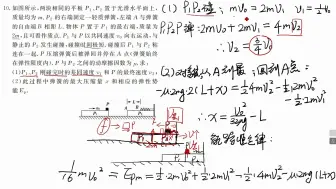 10. 如图所示,两块相同平板 P₁、P₂ 置于光滑水平面上,
质量均为 m。P₂ 的右端固定一轻质弹簧,左端 A 与弹簧
的自由端 B 相距 L。物体 P 置于 P₁ 的最右端,质量为
2m 且可看作质点。P₁ 与 P 以共同速度 v₀ 向右运动,与
静止的 P₂ 发生碰撞,碰撞时间极短,碰撞后 P₁ 与 P₂ 粘
连在一起。P 压缩弹簧后被弹回并停在 A 点(弹簧始终
在弹性限度内)。P 与 P₂ 之间的动摩擦因数为 μ,求:
(1) P₁、P₂ 刚碰完时的共同速度 v₁ 和 P 的最终速度 v₂;
(2) 此过程中弹簧的最大压缩量 x 和相应的弹性势
能 Eₚ。
(1) P₁P₂碰: mv₀ = 2mv₁
P₁P₂P 弹: 2mv₀ + 2mv₁ = 4mv₂
∴ v₂ = ¾v₀
(2) 对
-μ2mg·2(L+x) = ½4mv₂² - ½2mv₀²
- ½2mv₁²
∴ x = v₀²/32μg - L